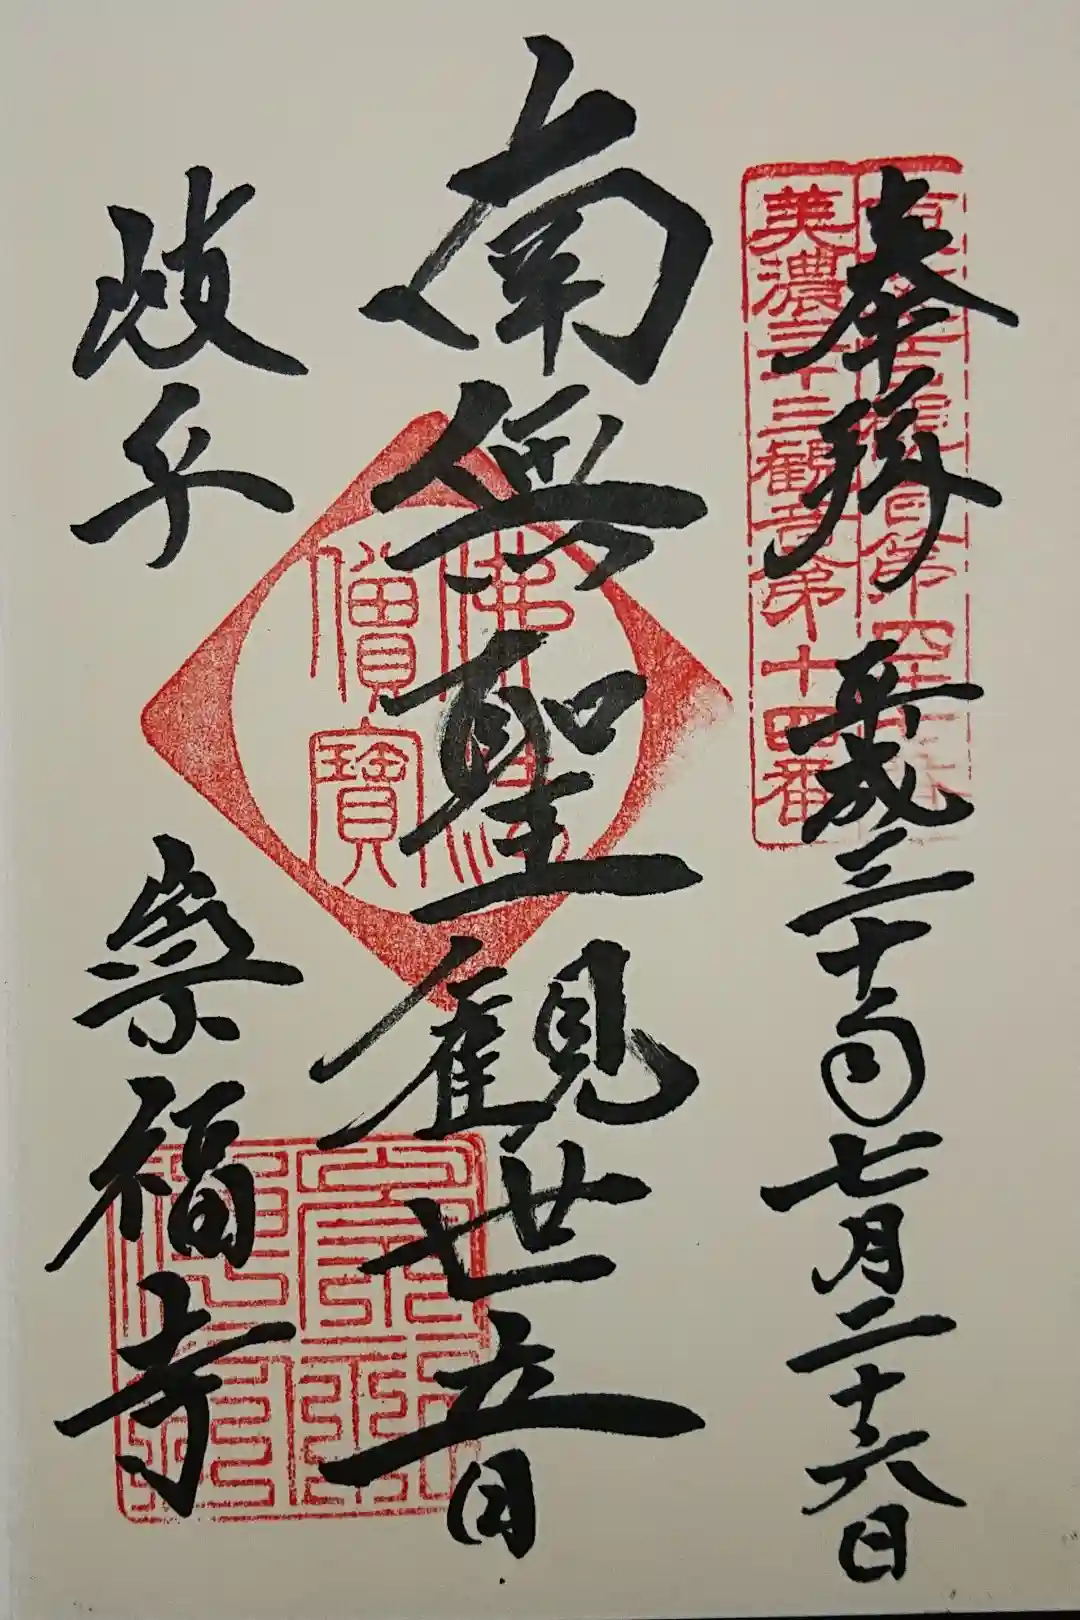 奉拝 平成三十年七月二十六日
美濃三十三観音第十四番
南無聖観世音
僧寳
岐阜 崇福寺